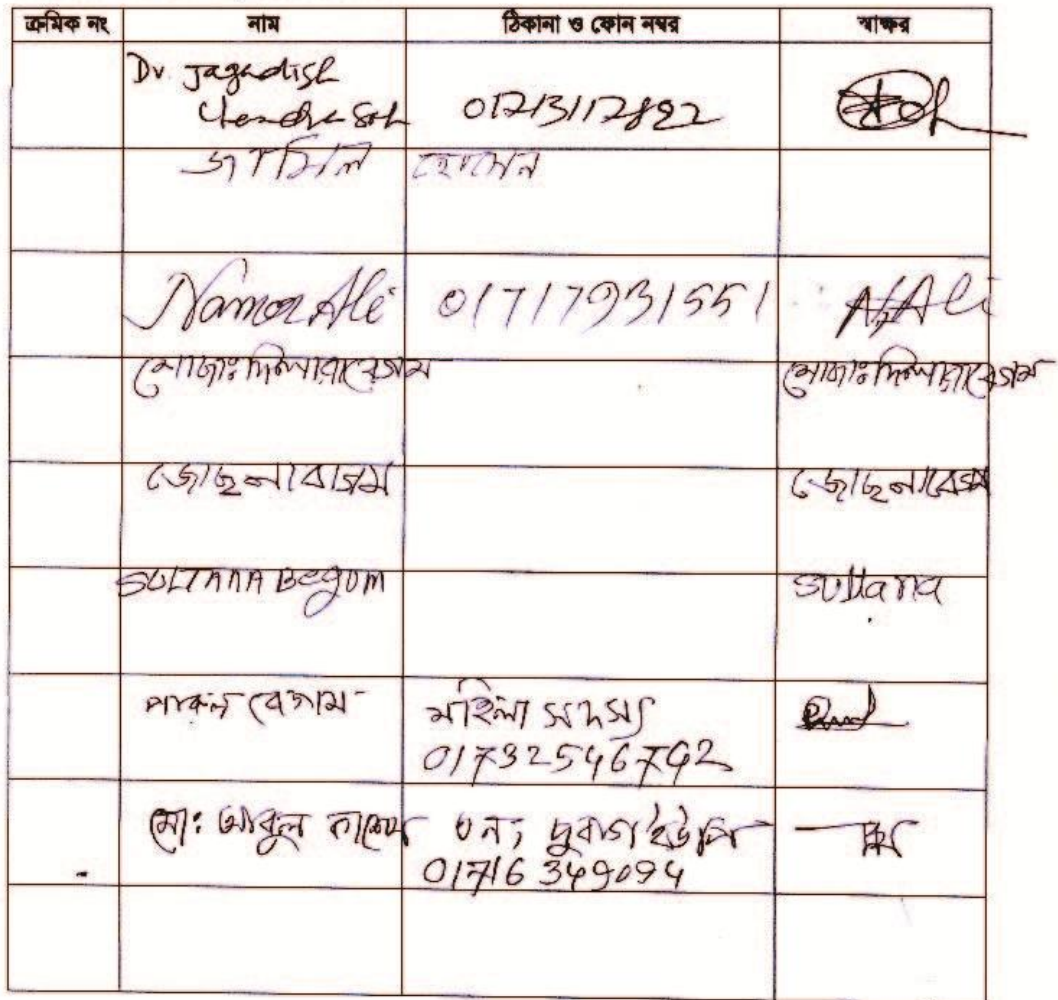 ক্রমিক নং নাম ঠিকানা ও ফোন নম্বর স্বাক্ষর
Dr. Jagadish
Chandra Sah 01713117892
জামিল হোসেন
Namor Ali 01717931551 N. Ali
মোছাঃ দিলারা বেগম মোছাঃ দিলারা বেগম
জোছনা বেগম জোছনা বেগম
SULTANA Begum Sultana
পারুল বেগম মহিলা সদস্য
01732546792
মো: আবুল কাশেম ৮নং দুবাগ ইউপি
01716349094